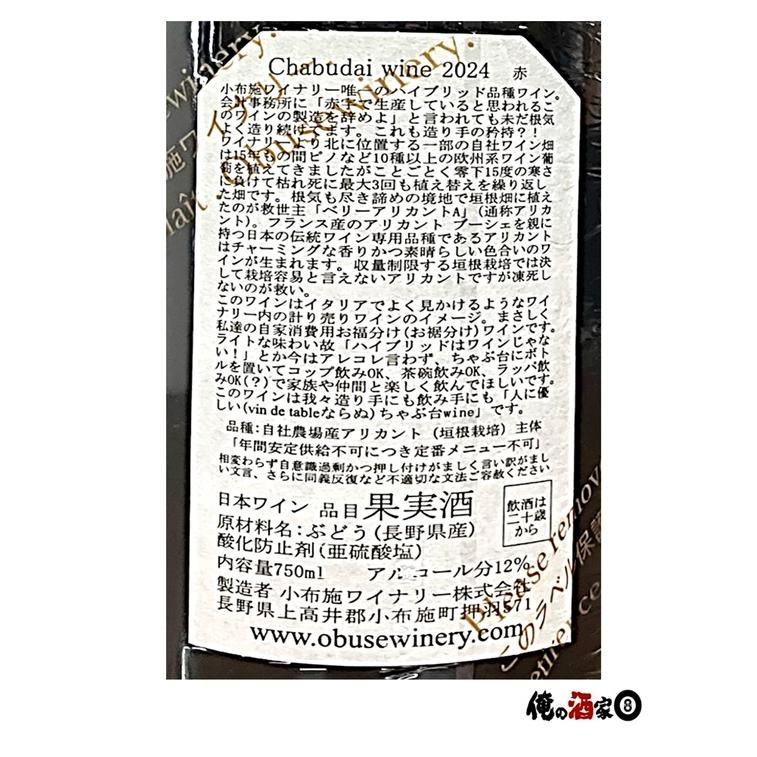 Chabudai wine 2024 赤
小布施ワイナリー唯一のハイブリッド品種ワイン。
会計事務所に「赤字で生産していると思われるこ
のワインの製造を辞めよ」と言われても未だ根気
よく造り続けてます。これも造り手の矜持？！
ワイナリーより北に位置する一部の自社ワイン畑
は15年もの間ピノなど10種以上の欧州系ワイン葡
萄を植えてきましたがことごとく零下15度の寒さ
に負けて枯れ死に最大3回も植え替えを繰り返し
た畑です。根気も尽き諦めの境地で垣根畑に植え
たのが救世主「ベリーアリカントA」(通称アリカ
ント)。フランス産のアリカント ブーシェを親に
持つ日本の伝統ワイン専用品種であるアリカント
はチャーミングな香りかつ素晴らしい色合いのワ
インが生まれます。収量制限する垣根栽培では決
して栽培容易と言えないアリカントですが凍死し
ないのが救い。
このワインはイタリアでよく見かけるようなワイ
ナリー内の計り売りワインのイメージ。まさしく
私達の自家消費用お福分け(お裾分け)ワインです。
ライトな味わい故「ハイブリッドはワインじゃな
い！」とか今はアレコレ言わず、ちゃぶ台にボト
ルを置いてコップ飲みOK、茶碗飲みOK、ラッパ飲
みOK(？)で家族や仲間と楽しく飲んでほしいです。
このワインは我々造り手にも飲み手にも「人に優
しい(vin de tableならぬ)ちゃぶ台wine」です。
品種:自社農場産アリカント (垣根栽培) 主体
「年間安定供給不可につき定番メニュー不可」
相変わらず自意識過剰かつ押し付けがましく言い訳がまし
い文言、さらに同義反復など不適切な文法ご容赦ください
日本ワイン 品目 果実酒
飲酒は
二十歳
から
原材料名:ぶどう(長野県産)
酸化防止剤(亜硫酸塩)
内容量750ml アルコール分12%
製造者 小布施ワイナリー株式会社
長野県上高井郡小布施町押羽571
www.obusewinery.com
Obusewinery.
Please remov
このラベル保護
俺の酒家8